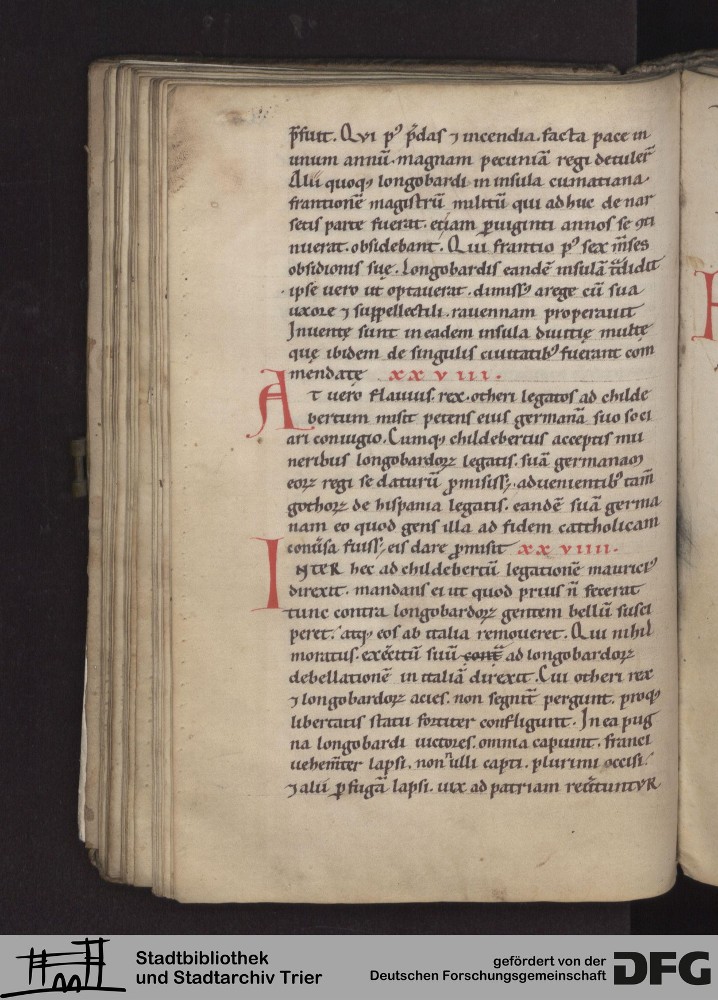 p̄fuit. Qui pꝰ p̄das ⁊ incendia. facta pace in
unum annū. magnam pecuniā regi detuler̄
Alii quoqꝫ longobardi in insula cumatiana
frantionē magistrū militū qui adhuc de nar
setis parte fuerat. etiam ꝑ uiginti annos se ꝯti
nuerat. obsidebant. Qui frantio pꝰ sex m̄ses
obsidionis suę. Longobardis eandē insulā t̄didit
ipse uero ut optauerat. dimissꝰ a rege cū sua
uxore ⁊ suppellectili. rauennam properauit
Inuentę sunt in eadem insula diuitię multę
quę ibidem de singulis ciuitatibꝰ fuerant com
mendatę xxviii.
At uero flauius. rex. otheri legatos ad childe
bertum misit petens eius germanā suo soci
ari coniugio. Cumqꝫ childebertus acceptis mu
neribus longobardoꝝ legatis. suā germanam
eoꝝ regi se daturū ꝓmisissꝫ, aduenientibꝰ tam̄
gothoꝝ de hispania legatis. eandē suā germa
nam eo quod gens illa ad fidem cattholicam
conūsa fuissꝫ, eis dare ꝓmisit xxviiii.
INTER hec ad childebertū legationē mauriciꝰ
direxit. mandans ei ut quod prius n̄ fecerat
tunc contra longobardoꝝ gentem bellū susci
peret. atqꝫ eos ab italia remoueret. Qui nihil
moratus. exc̄itū suū cont̄ ad longobardoꝝ
debellationē in italiā direxit. Cui otheri rex
⁊ longobardoꝝ acies. non segnit̄ pergunt. proqꝫ
libertatis statu fortiter confligunt. In ea pug
na longobardi uictores. omnia capiunt. franci
uehem̄ter lapsi. nonnulli capti. plurimi occisi.
⁊ alii ꝑ fugā lapsi. uix ad patriam reūtuntur
Stadtbibliothek
und Stadtarchiv Trier
gefördert von der
Deutschen Forschungsgemeinschaft
DFG